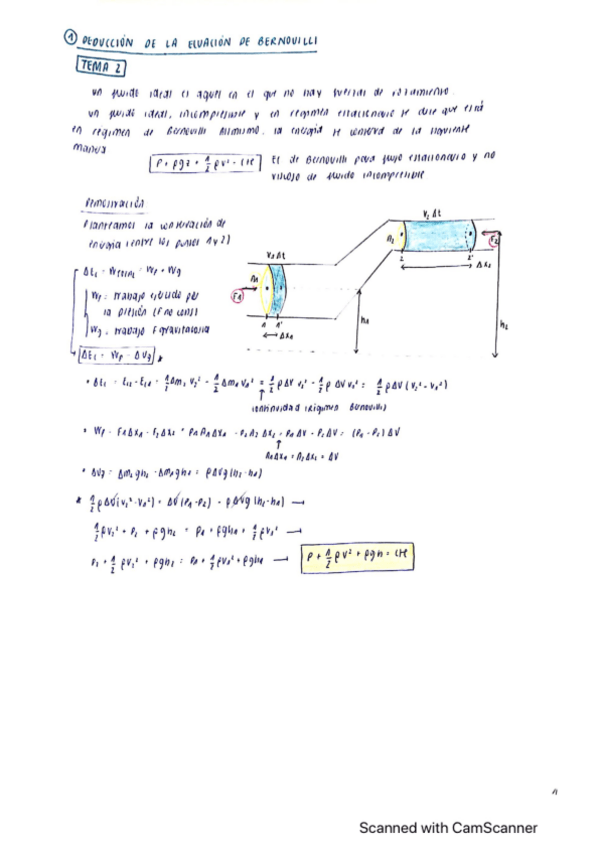 1 DEDUCCIÓN DE LA ECUACIÓN DE BERNOUILLI
TEMA 2
Un fluido ideal es aquel en el que no hay fuerzas de rozamiento.
Un fluido ideal, incompresible y en regimen estacionario se dice que está
en regimen de Bernouilli. Asimismo, la energía se conserva de la siguiente
manera
P + ρgz + 1/2 ρv² = cte
Ec de Bernouilli para flujo estacionario y no
viscoso de fluido incompresible
Demostración
Planteamos la conservación de
energía (entre los puntos 1 y 2)
ΔEc = Wtotal = Wp + Wg
Wp = trabajo ejercido por
la presión (F no cons)
Wg = trabajo F gravitatoria
ΔEc = Wp - ΔUg *
V1Δt
A1
F1
1 1'
Δx1
h1
V2 Δt
A2
F2
2 2'
Δx2
h2
• ΔEc = Ec2 - Ec1 = 1/2 Δm2 v2² - 1/2 Δm1 v1² = 1/2 ρ ΔV v2² - 1/2 ρ ΔV v1² = 1/2 ρΔV (v2² - v1²)
continuidad (Régimen Bernouilli)
• Wp = F1Δx1 - F2Δx2 = P1A1Δx1 - P2A2Δx2 = P1ΔV - P2ΔV = (P1 - P2)ΔV
A1Δx1 = A2Δx2 = ΔV
• ΔUg = Δm2gh2 - Δm1gh1 = ρΔVg(h2-h1)
* 1/2 ρΔV(v2² - v1²) = ΔV(P1-P2) - ρΔVg(h2-h1) →
1/2 ρv2² + P2 + ρgh2 = P1 + ρgh1 + 1/2 ρv1² →
P2 + 1/2 ρv2² + ρgh2 = P1 + 1/2 ρv1² + ρgh1 →
P + 1/2 ρv² + ρgh = cte
1
Scanned with CamScanner